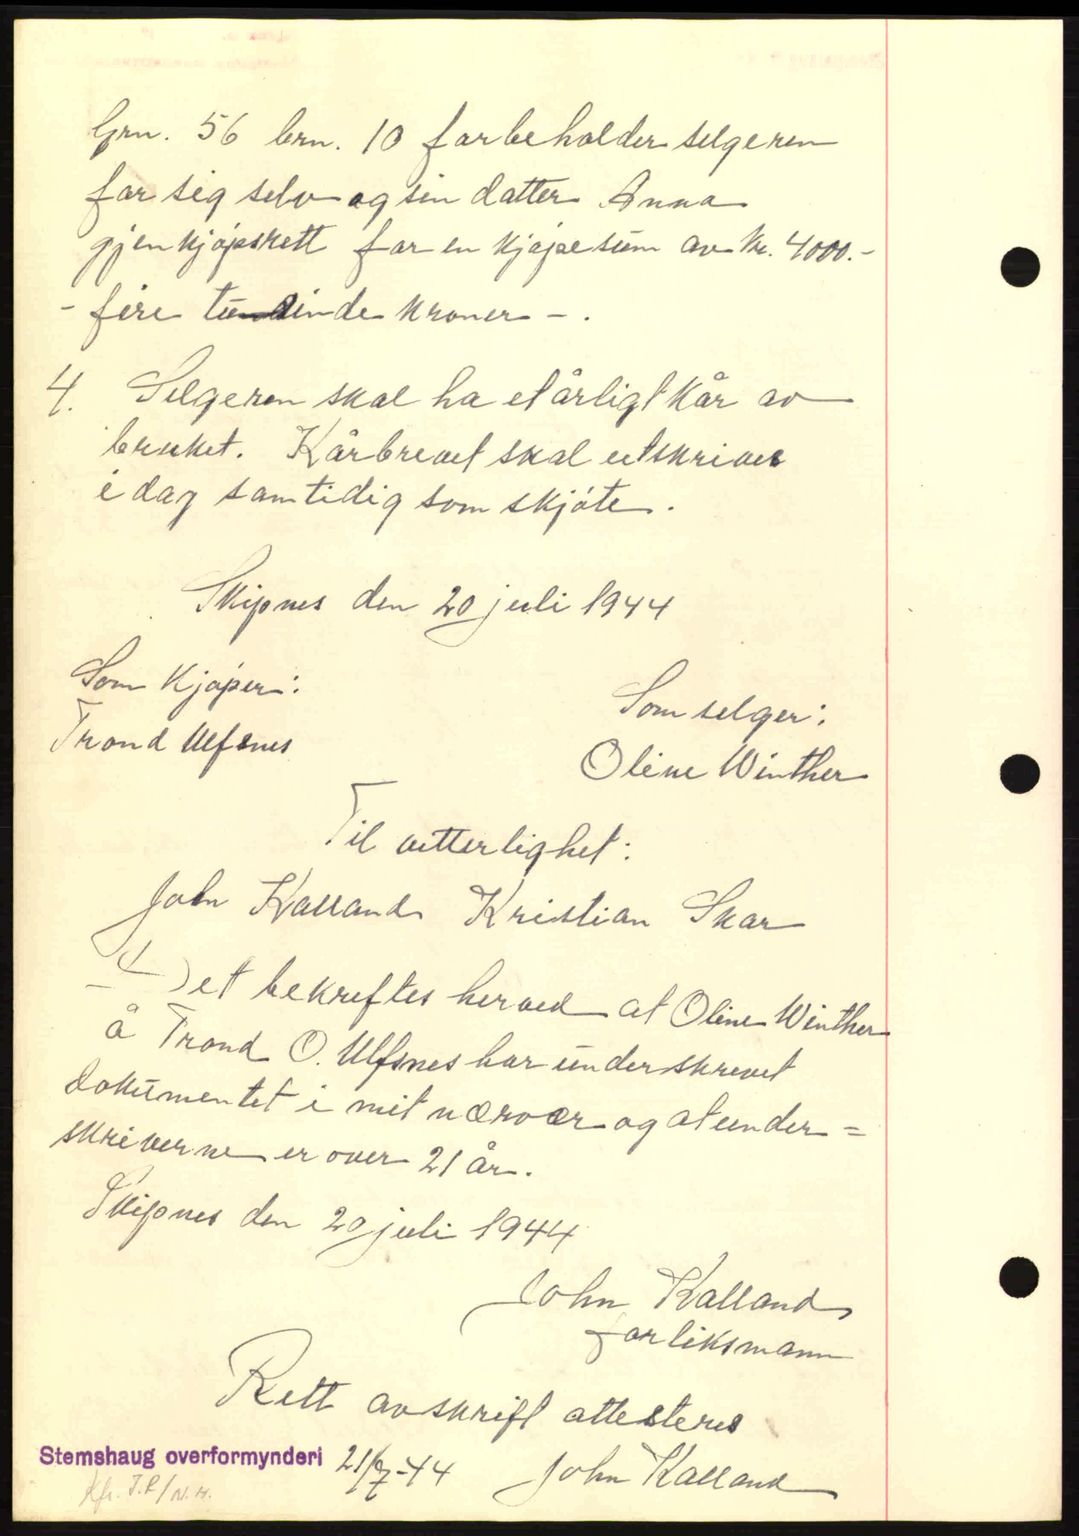 Grn. 56 brn. 10 forbeholder selgeren
for sig selv og sin datter Anna
gjenkjøpsrett for en kjøpesum av kr. 4000.-
- fire tusinde kroner - .
4. Selgeren skal ha et årligt kår av
bruket. Kårbrevet skal utskrives
i dag samtidig som skjøte.
Skipnes den 20 juli 1944
Som kjøper:
Trond Ulfsnes
Som selger:
Oline Winther
Til vitterlighet:
John Kalland Kristian Skar
Det bekreftes herved at Oline Winther
å Trond O. Ulfsnes har underskrevet
dokumentet i mit nærvær og at under=
skriverne er over 21 år.
Skipnes den 20 juli 1944
John Kalland
forliksmann
Rett avskrift attesteres
Stemshaug overformynderi 21/7-44 John Kalland
Kfr. J.P/N.H.